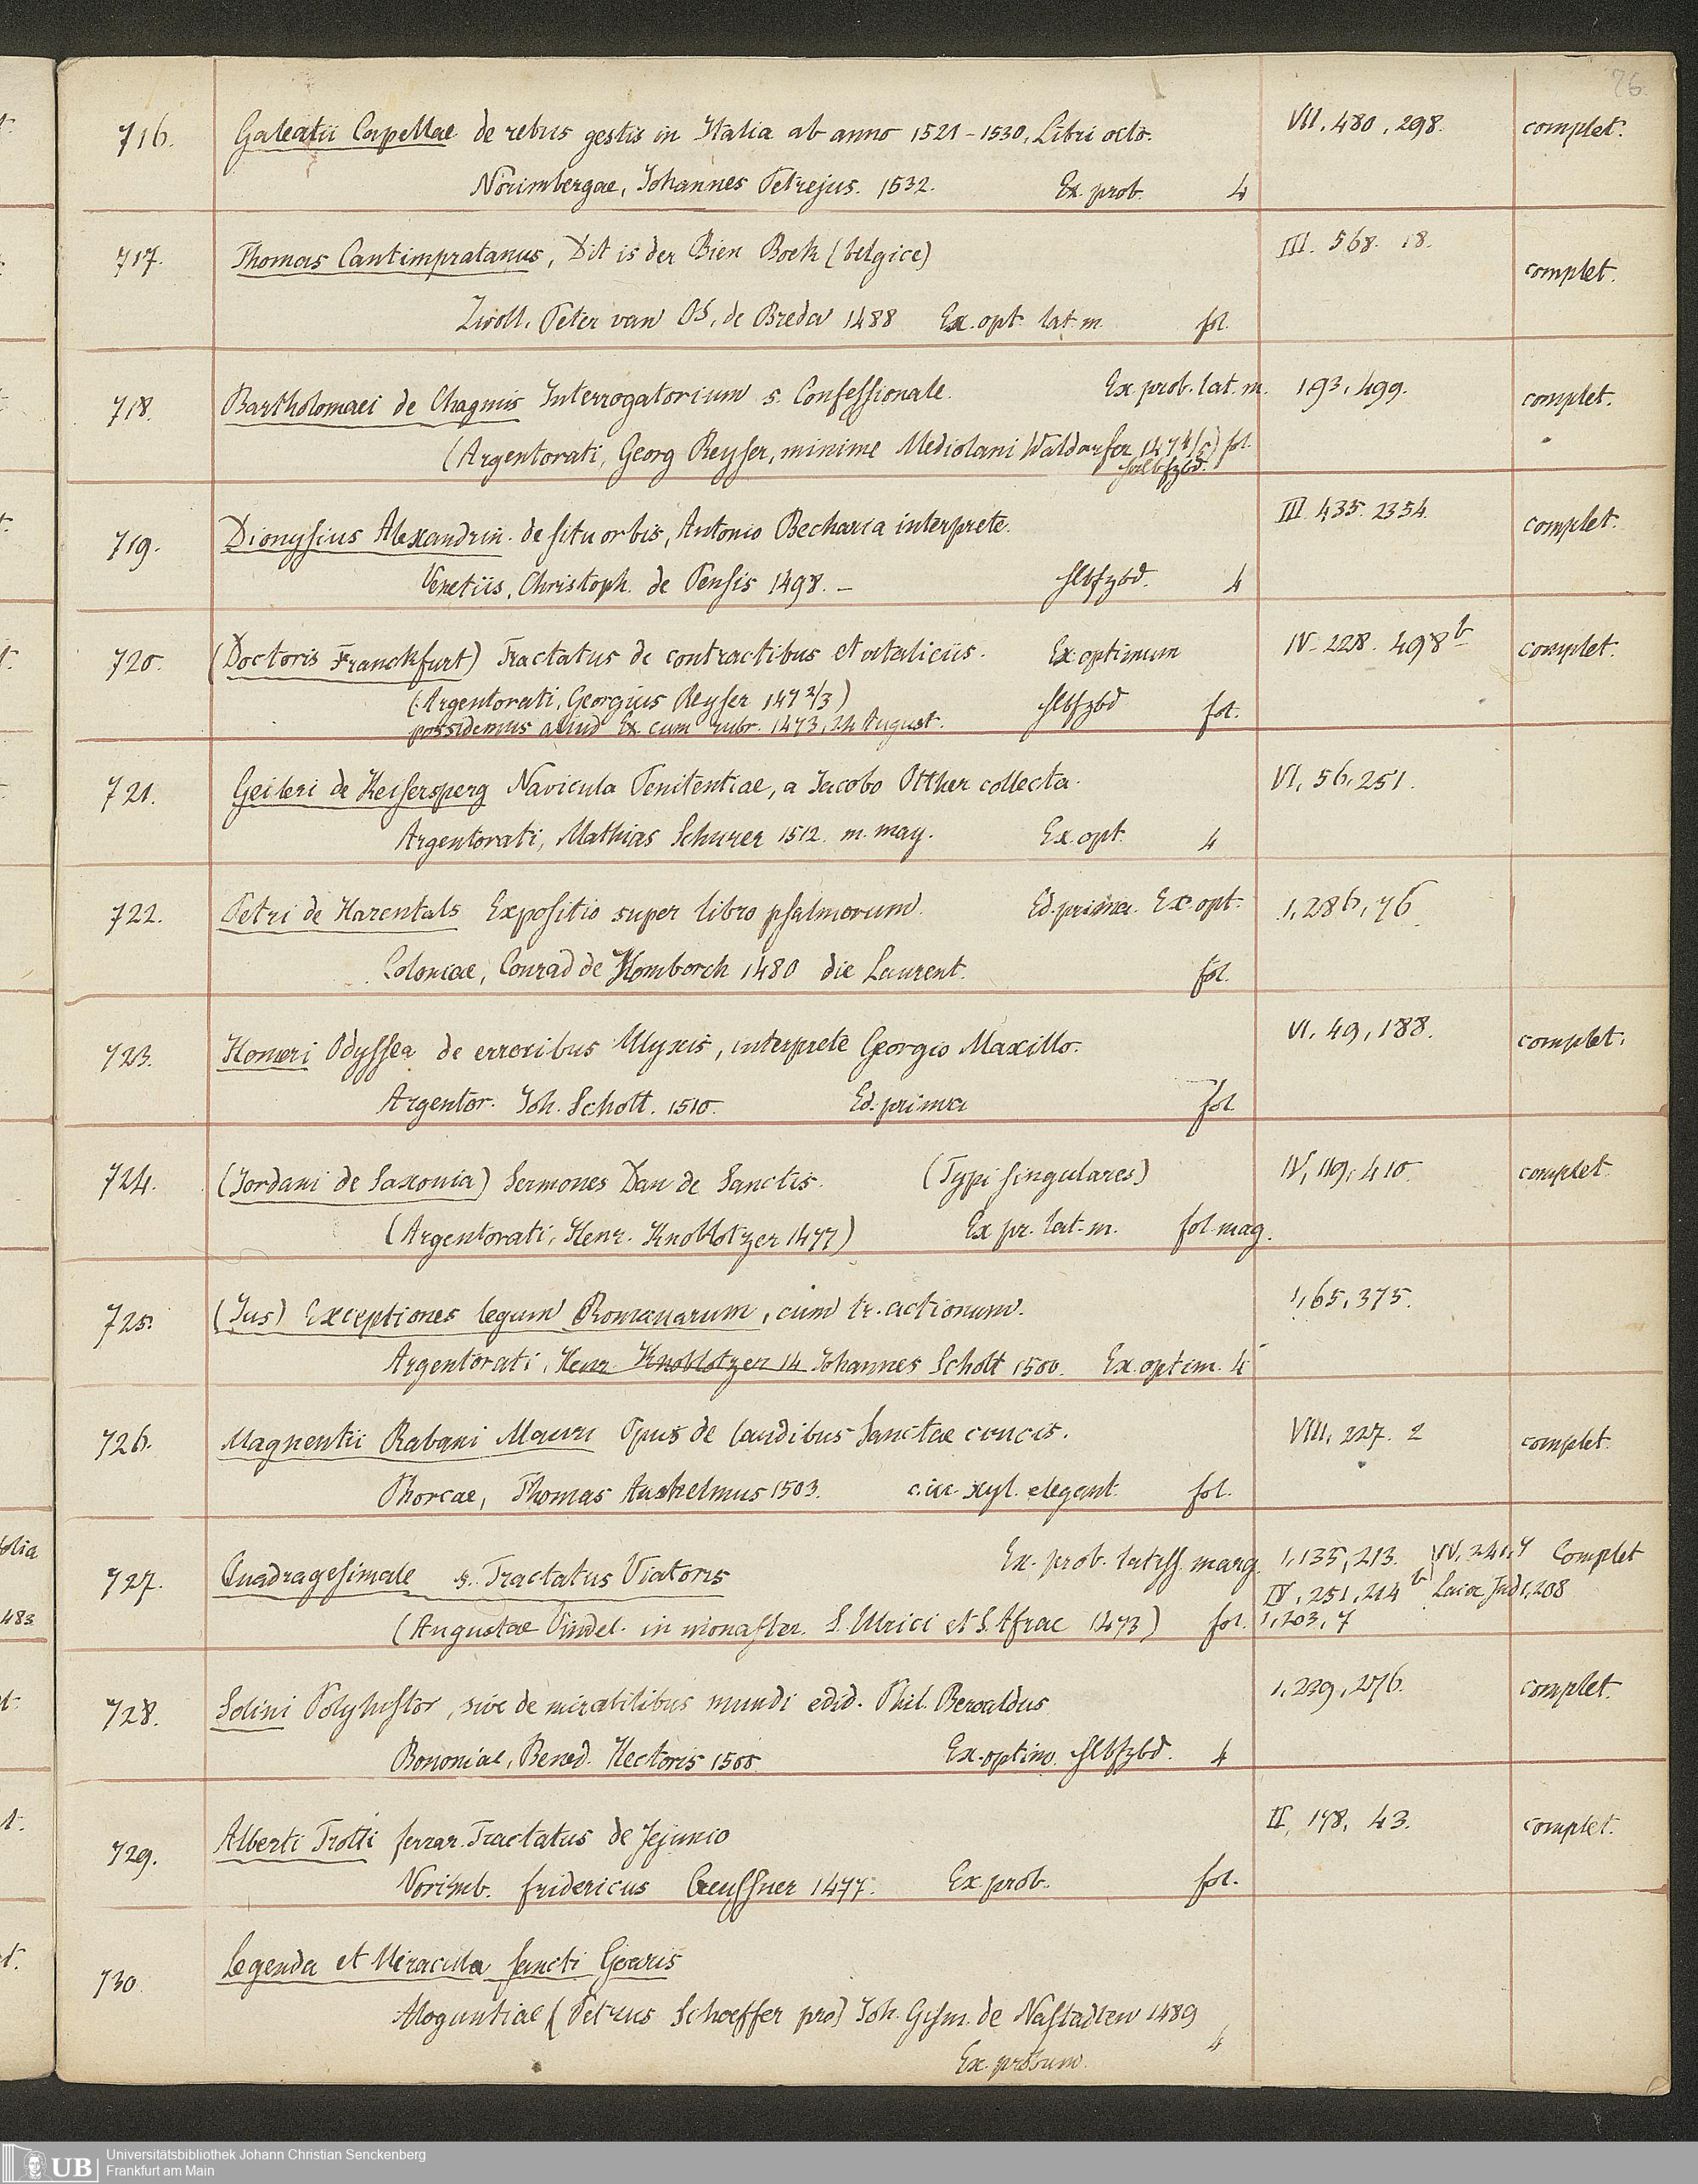 76.
716. Galeatii Capellae de rebus gestis in Italia ab anno 1521-1530, Libri octo. VII, 480, 298. complet.
Norimbergae, Johannes Petrejus. 1532. Ex. prob. 4
717. Thomas Cantimpratanus, Dit is der Bien Boek (belgice) III. 568. 18. complet.
Zwoll, Peter van Os, de Breda 1488 Ex. opt. lat. m. fol.
718. Bartholomaei de Chagmis Interrogatorium s. Confessionale. Ex. prob. lat. m. 1,93, 499. complet.
(Argentorati, Georg Reyser, minime Mediolani Waldarfer 1474/5) fol.
Hlbfzbd.
719. Dionysius Alexandrin. de situ orbis, Antonio Becharia interprete. III. 435. 2354. complet.
Venetiis, Christoph. de Pensis 1498. – Hlbfzbd. 4
720. (Doctoris Franckfurt) Tractatus de contractibus et vitaliciis. Ex optimum IV. 228. 498 b complet.
(Argentorati, Georgius Reyser 1472/3) Hlbfzbd fol.
possidemus aliud Ex. cum rubr. 1473, 24 August.
721. Geileri de Keisersperg Navicula Penitentiae, a Jacobo Otther collecta. VI, 56, 251.
Argentorati, Mathias Schurer 1512. m. may. Ex. opt. 4
722. Petri de Harentals Expositio super libro psalmorum. Ed. prima. Ex. opt. 1, 286, 76.
Coloniae, Conrad de Homborch 1480 die Laurent. fol.
723. Homeri Odyssea de erroribus Ulyxis, interprete Georgio Maxillo. VI, 49, 188. complet.
Argentor. Joh. Schott. 1510. Ed. prima fol
724. (Jordani de Saxonia) Sermones Dan de Sanctis. (Typi singulares) IV, 119, 410. complet.
(Argentorati, Henr. Knoblotzer 1477) Ex pr. lat. m. fol. mag.
725. (Jus) Exceptiones legum Romanarum, cum tr. actionum. 1, 65, 375.
Argentorati, Henr. Knoblotzer 14 Johannes Schott 1500. Ex. optim. 4
726. Magnentii Rabani Mauri Opus de laudibus Sanctae crucis. VIII, 227. 2 complet.
Phorcae, Thomas Anshelmus 1503. xyl. elegant. fol.
727. Quadragesimale s. Tractatus Viatoris Ex. prob. latiss. marg. 1, 135, 213. IV, 241, 4 Complet
IV, 251, 214 b 1,208
(Augustae Vindel. in monaster. S. Ulrici et S. Afrae 1473) fol. 1, 203, 7
728. Solini Polyhistor, sive de mirabilibus mundi edid. Phil. Beroaldus 1, 229, 276. complet.
Bononiae, Bened. Hectoris 1500. Ex. optim. Hlbfzbd. 4
729. Alberti Trotti ferrar. Tractatus de Jejunio II, 178, 43. complet.
Norimb. fridericus Creussner 1477. Ex prob. fol.
730. Legenda et Miracula sancti Goaris
Moguntiae (Petrus Schoeffer pro) Joh. Gysm. de Nastadten 1489
Ex. probum. 4
olia
483
UB Universitätsbibliothek Johann Christian Senckenberg
Frankfurt am Main